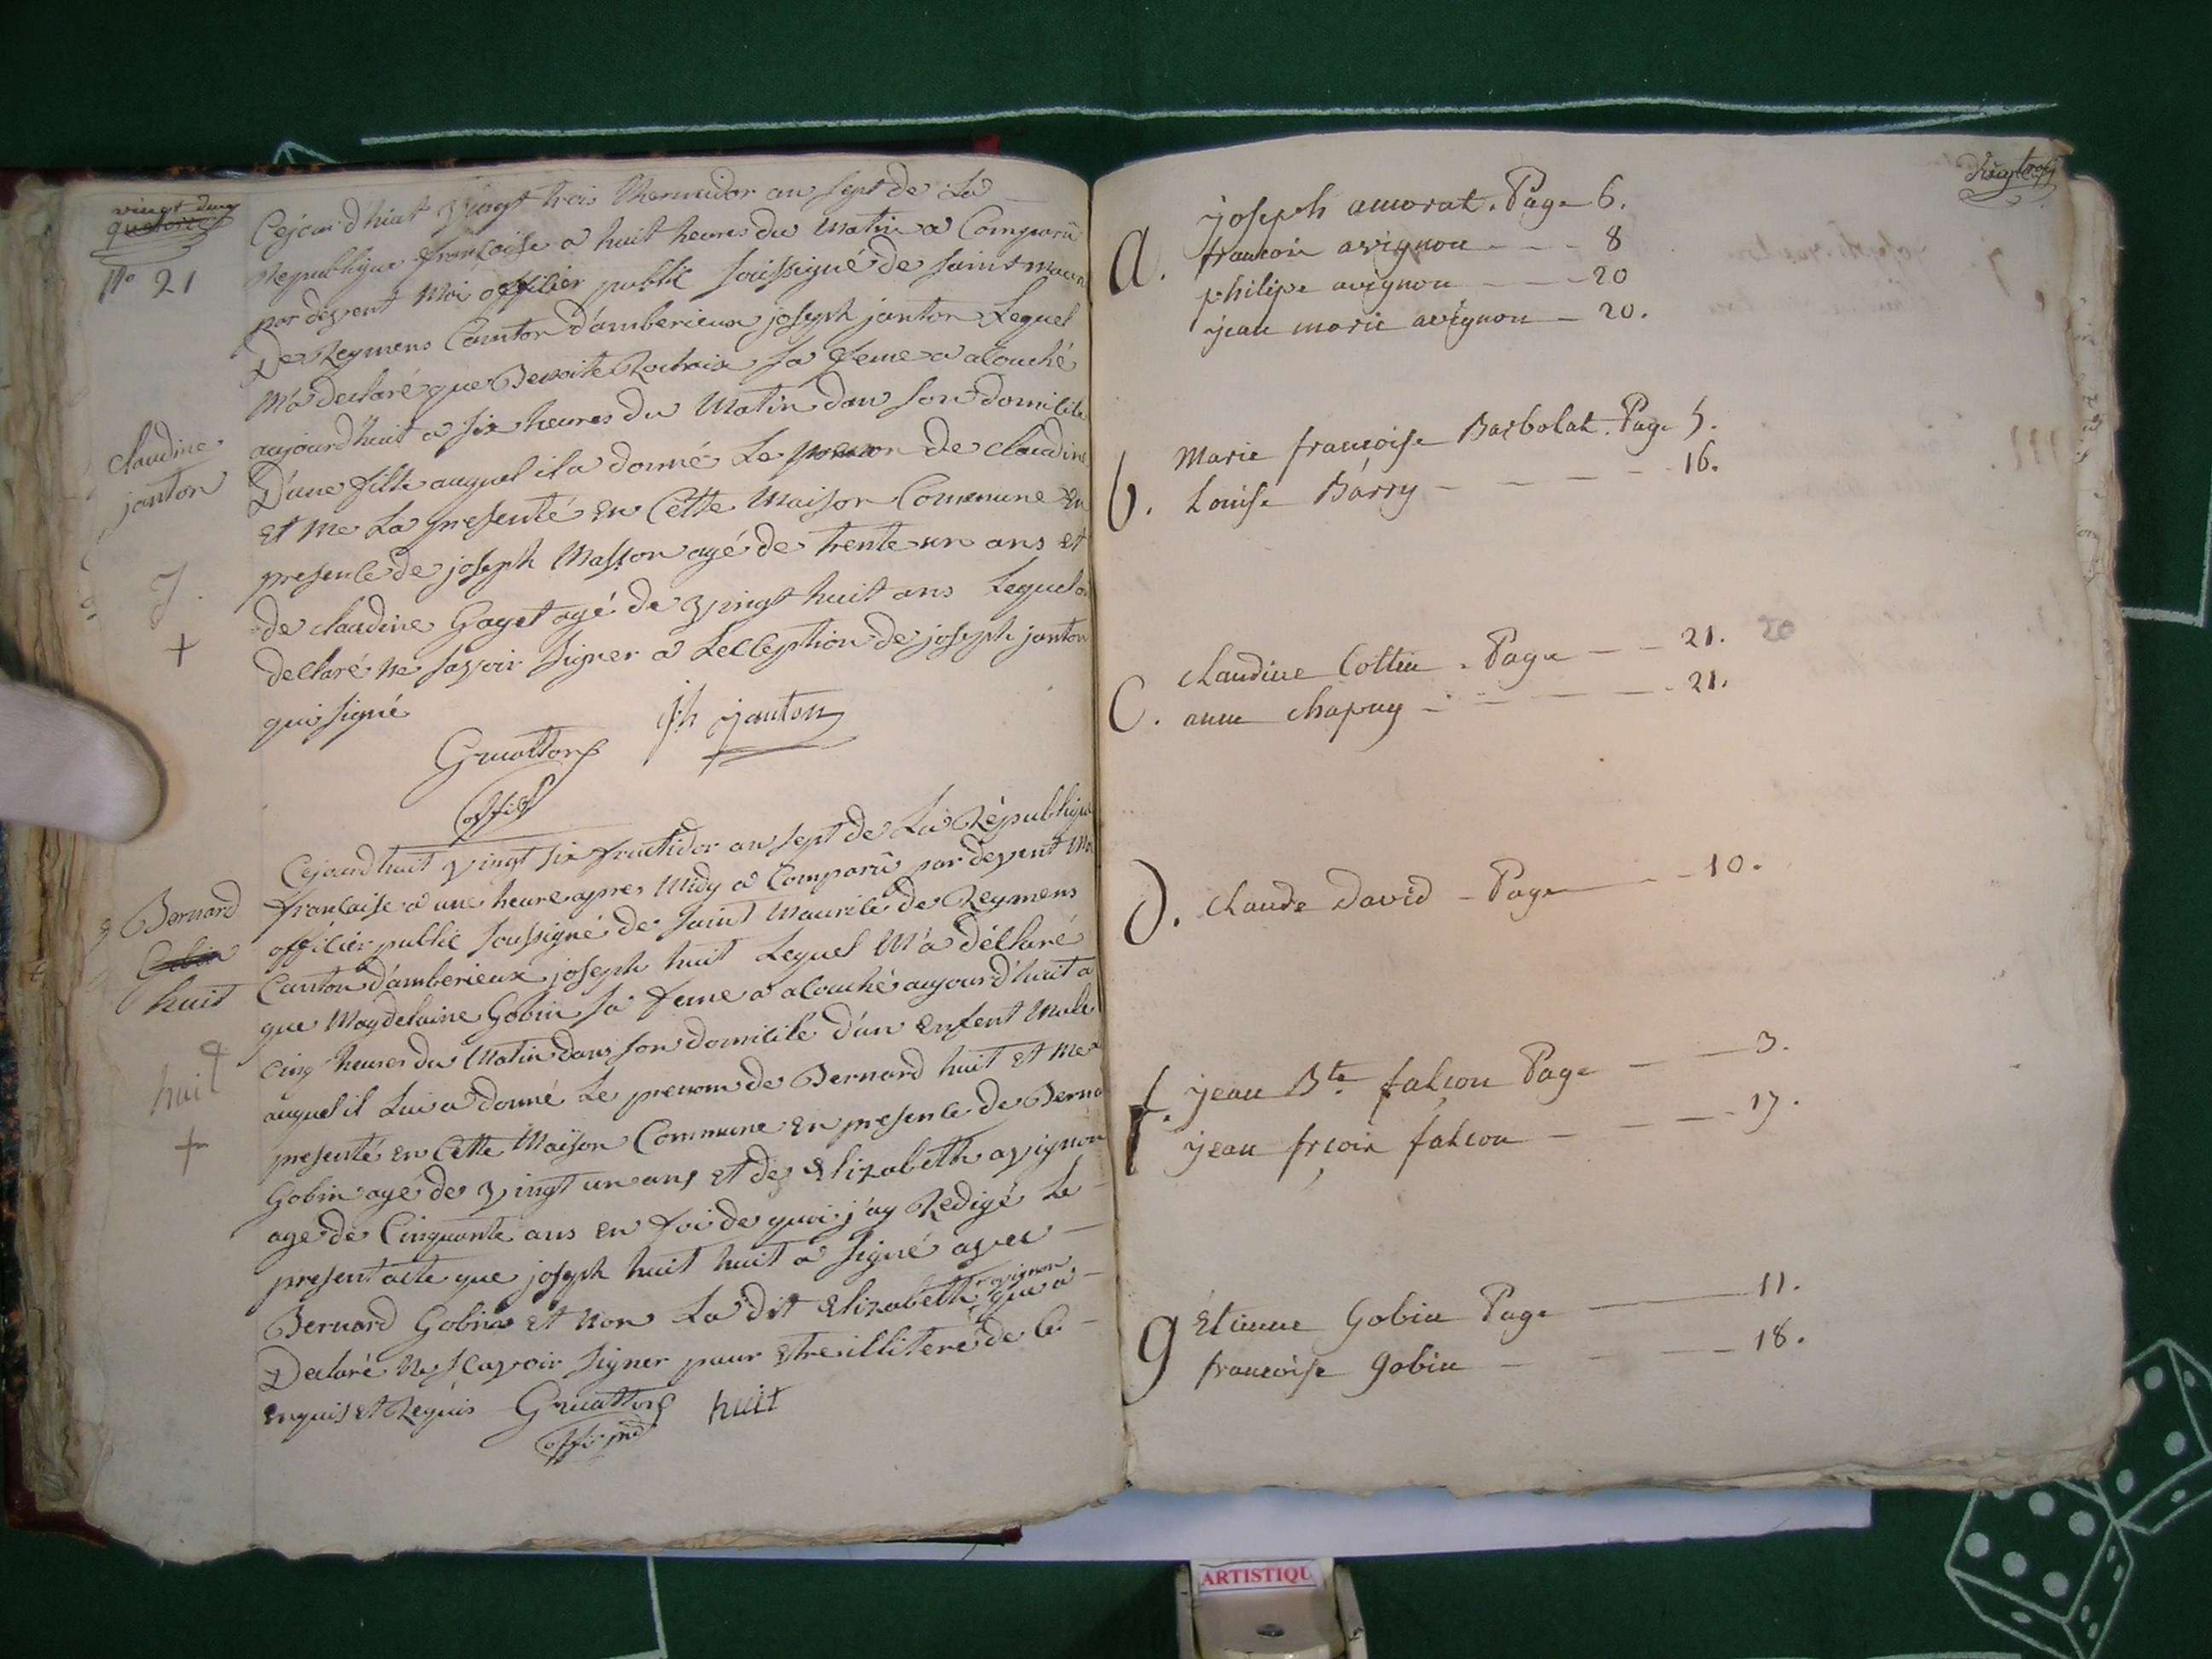 vingt deux
No 21
Cejourd'huit vingt trois thermidor an sept de La
Republique françoise a huit heures du Matin a Comparû
par devent Moi officier public soussigné de saint Mauri
De Reymens Canton d'amberieux joseph janton Lequel
M'a declaré que Benoite Rochaix sa feme a acouché
aujourd'huit a six heures du Matin dan son domicile
claudine
janton
D'une fille auquel il a donné Le prenon De claudine
Et Me La presenté en Cette Maison Commune En
presence de joseph Masson agé de trente un ans Et
de claudine Gayet agé de vingt huit ans Lequel a
declaré ne savoir signer a Lecception de joseph janton
qui signé
J.
+
Gruatton jh janton
offic
Cejourd huit vingt six fructidor an sept de La République
francaise a une heure apres Midy a Comparû par devent Moi
officier public soussigné de saint Maurice de Reymens
Canton d'amberieux joseph huit Lequel M'a déclaré
que Magdelaine Gobin sa feme a acouché aujourd'huit a
Cinq heures du Matin dans son domicile d'un enfent Male
auquel il Lui a donné Le prenom de Bernard huit et Me
presenté en Cette Maison Commune en presence de Berna
Gobin agé de vingt un ans et de Elizabeth avignon
age de Cinquante ans en foi de quoi j'ay Redigé Le
present acte que joseph huit huit a signé avec
Bernard Gobin et non La dit Elizabeth avignon qui a
Declaré Ne scavoir signer pour etre illiteré de Ce
enquis et Requis Gruatton huit
offic
Bernard
Gobin
huit
huit
+
a. joseph amorat. Page 6.
francois avignon - - - 8
philipe avignon - - - 20
jean marie avignon - 20.
b. Marie françoise Barbolat. Page 5.
Louise Barry - - - - 16.
C. claudine Cottin. Page - - 21. 20
anne chapuy - - - - 21.
D. claude David - Page - - 10.
f. jean Bte falcon Page - - 3.
jean frcois falcon - - - 17.
g Etienne Gobin Page - 11.
francoise gobin - - - 18.